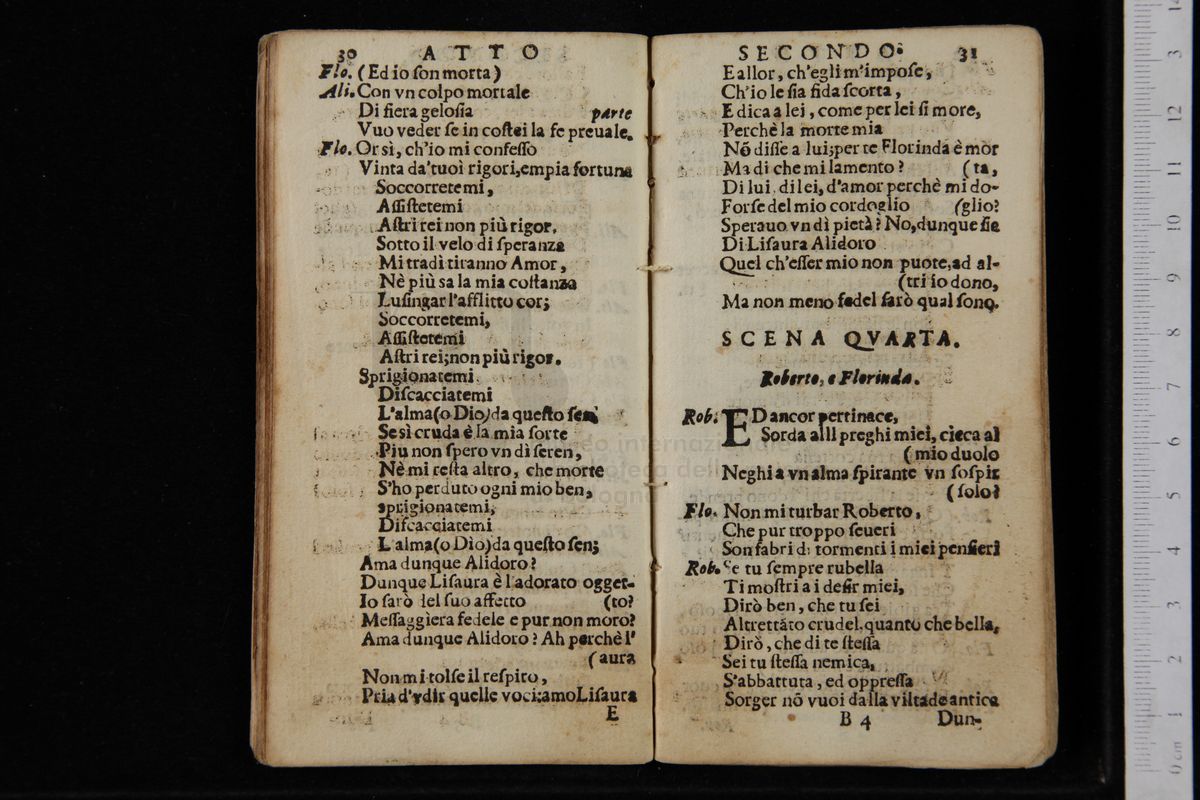 30 ATTO
Flo. (Ed io ſon morta)
Ali. Con vn colpo mortale
Di fiera geloſia parte
Vuo veder ſe in coſtei la fe preuale.
Flo. Or sì, ch'io mi confeſſo
Vinta da'tuoi rigori, empia fortuna
Soccorretemi,
Aſſiſtetemi
Aſtri rei non più rigor,
Sotto il velo di ſperanza
Mi tradì tiranno Amor,
Nè più sa la mia coſtanza
Luſingar l'afflitto cor;
Soccorretemi,
Aſſiſtetemi
Aſtri rei; non più rigor.
Sprigionatemi
Diſcacciatemi
L'alma (o Dio) da queſto ſen
Se sì cruda è la mia ſorte
Piu non ſpero vn dì ſeren,
Nè mi reſta altro, che morte
S'ho perduto ogni mio ben,
sprigionatemi,
Diſcacciatemi
L'alma (o Dio) da queſto ſen;
Ama dunque Alidoro?
Dunque Liſaura è l'adorato ogget-
Io ſarò del ſuo affetto (to?
Meſſaggiera fedele e pur non moro?
Ama dunque Alidoro? Ah perchè l'
(aura
Non mi tolſe il reſpito,
Pria d'vdir quelle voci: amo Liſaura
E
SECONDO. 31
E allor, ch'egli m'impoſe,
Ch'io le ſia fida ſcorta,
E dica a lei, come per lei ſi more,
Perchè la morte mia
Nõ diſſe a lui; per te Florinda è mor
Ma di che mi lamento? (ta,
Di lui, di lei, d'amor perchè mi do-
Forſe del mio cordoglio (glio?
Sperauo vn dì pietà? No, dunque ſia
Di Liſaura Alidoro
Quel ch'eſſer mio non puote, ad al-
(tri io dono,
Ma non meno fedel ſarò qual ſono.
SCENA QVARTA.
Roberto, e Florinda.
Rob. ED ancor pertinace,
Sorda alli preghi miei, cieca al
(mio duolo
Neghi a vn alma ſpirante vn ſoſpir
(ſolo?
Flo. Non mi turbar Roberto,
Che pur troppo ſeueri
Son fabri di tormenti i miei penſieri
Rob. Se tu ſempre rubella
Ti moſtri a i deſir miei,
Dirò ben, che tu ſei
Altrettãto crudel, quanto che bella,
Dirò, che di te ſteſſa
Sei tu ſteſſa nemica,
S'abbattuta, ed oppreſſa
Sorger nõ vuoi dalla viltade antica
B 4 Dun-